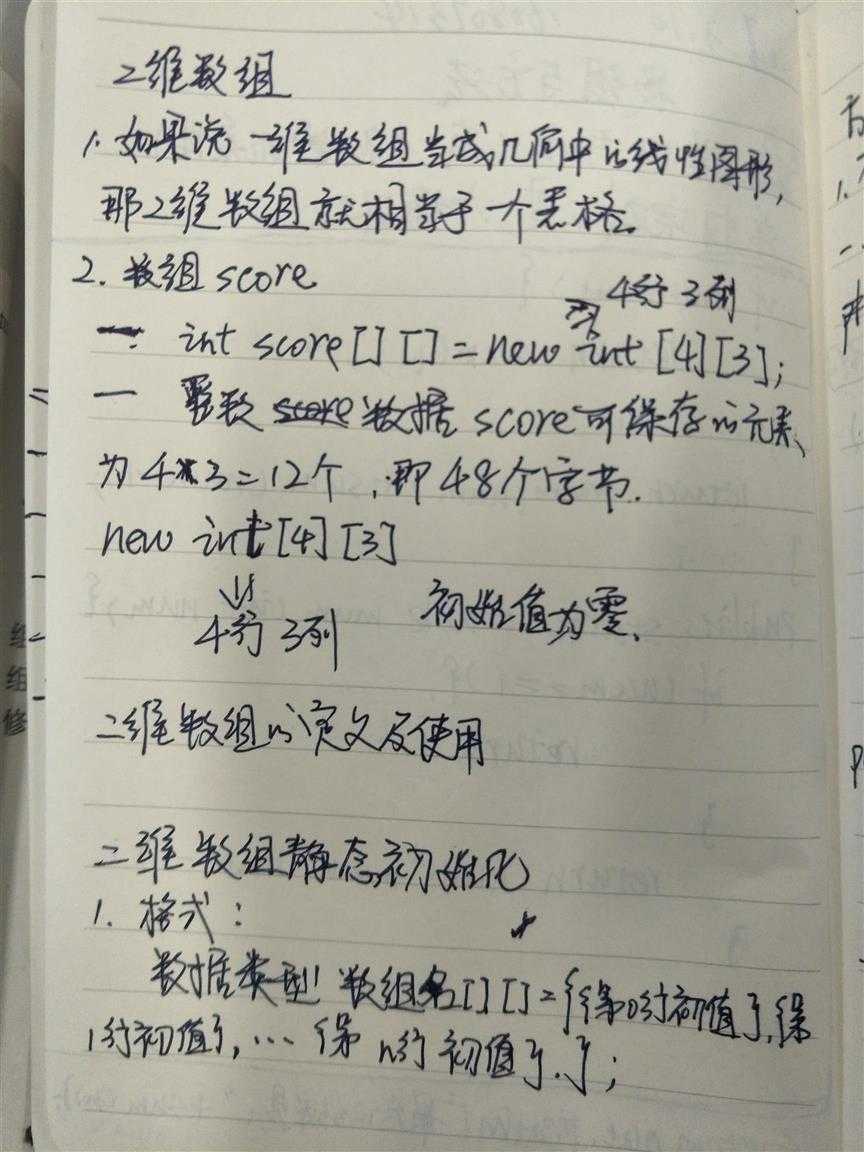 二维数组
1. 如果说一维数组当成几何中的线性图形,
那2维数组就相当于一个表格。
2. 数组 score
4行 3列
一 int score[][]=new int [4][3];
一 整数 score 数据 score 可保存的元素、
为 4*3=12个,即48个字节.
new int [4][3]
4行 3列 初始值为零.
二维数组的定义及使用
二维数组静态初始化
1. 格式:
数据类型 数组名[][]={{第0行初值},{第
1行初值},… {第n行初值}.};
组
组
修